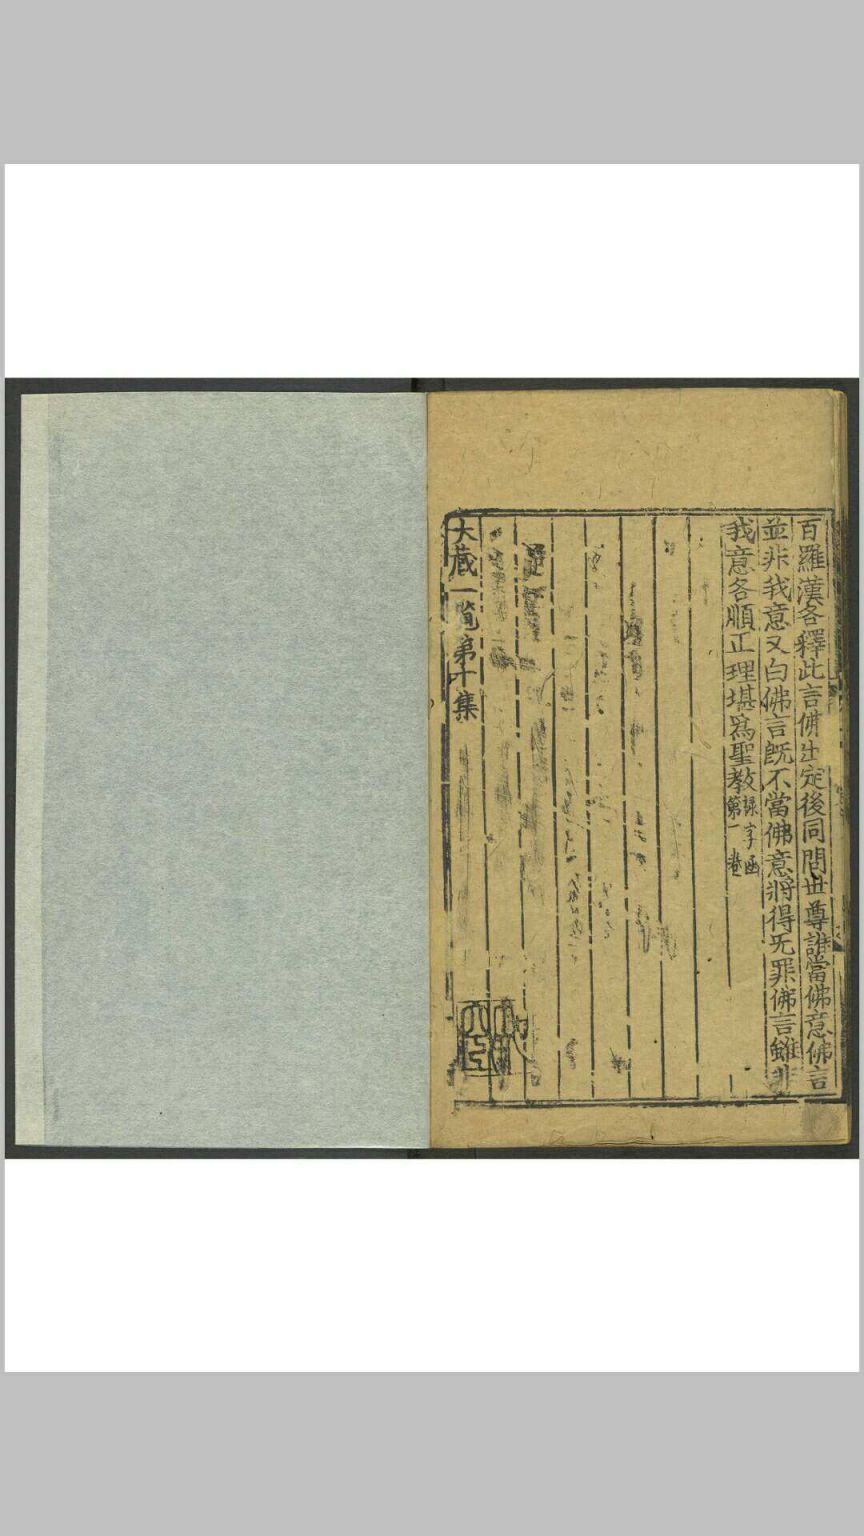 百羅漢各釋此言佛出定後同問世尊誰當佛意佛言
並非我意又白佛言旣不當佛意將得无罪佛言雖非
我意各順正理堪爲聖教
字函
第一卷
大藏一覧第十集